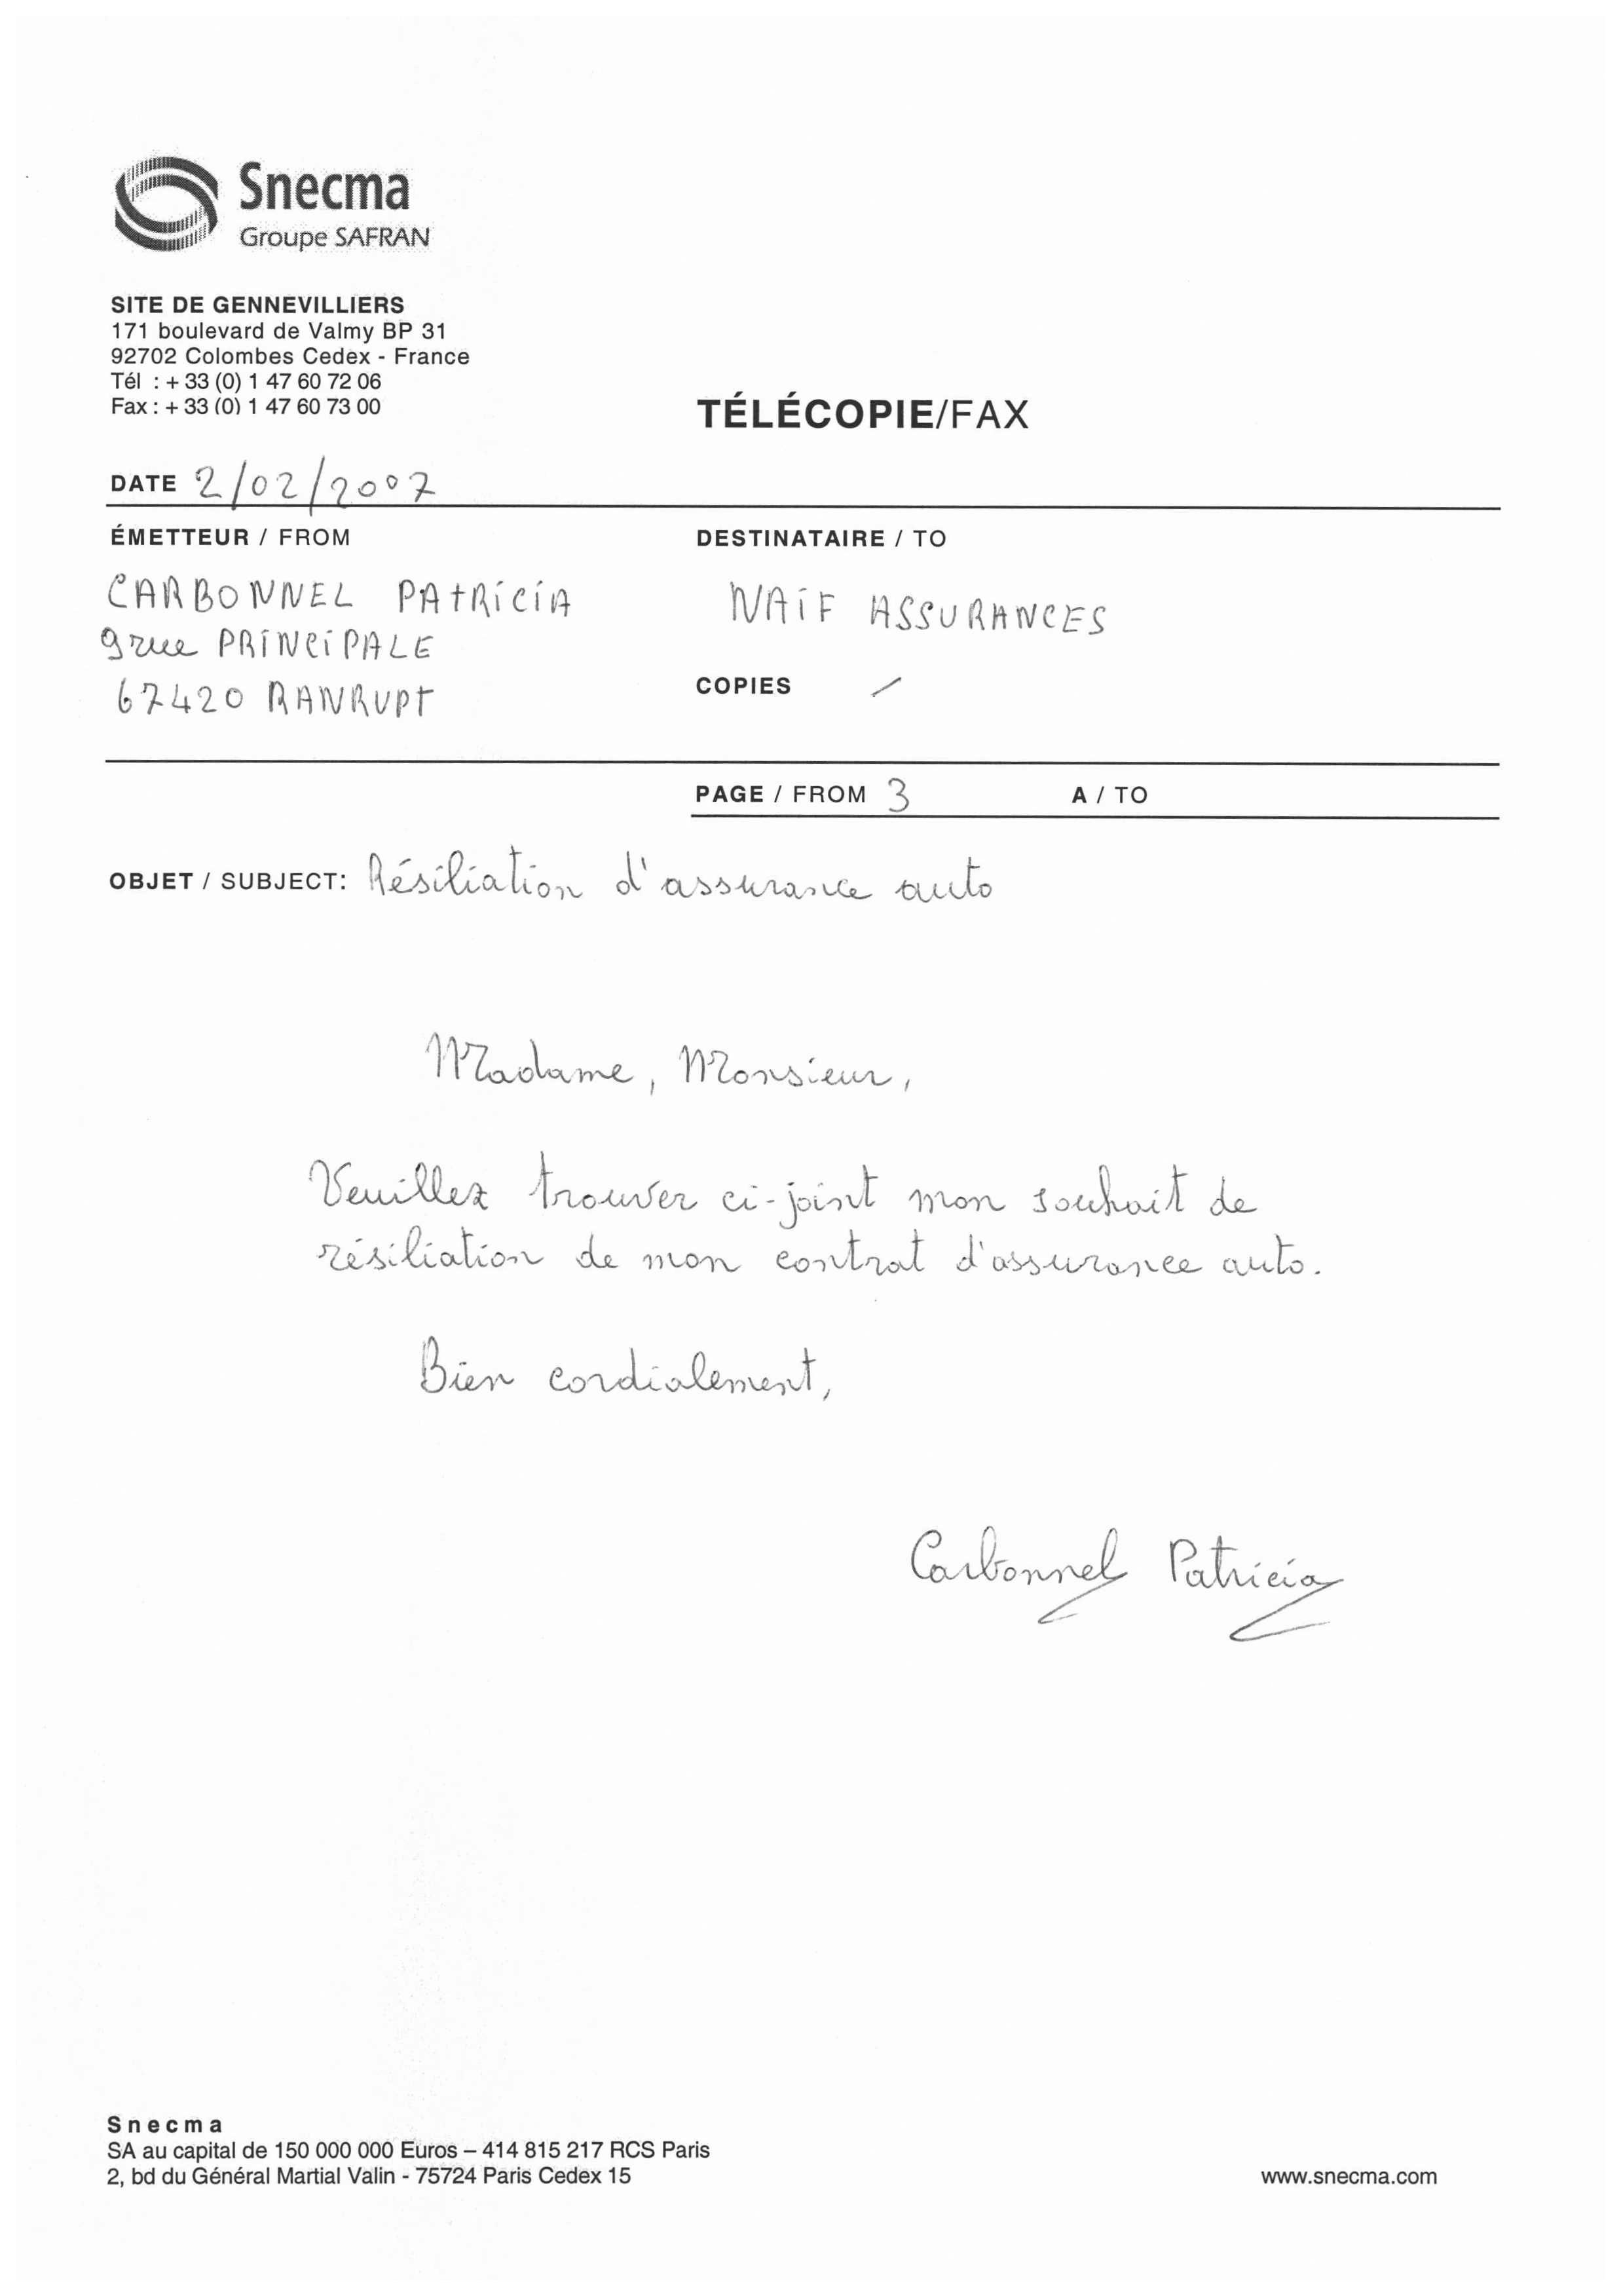 Snecma
Groupe SAFRAN
SITE DE GENNEVILLIERS
171 boulevard de Valmy BP 31
92702 Colombes Cedex - France
Tél : + 33 (0) 1 47 60 72 06
Fax : + 33 (0) 1 47 60 73 00
TÉLÉCOPIE/FAX
DATE 2/02/2007
ÉMETTEUR / FROM
CARBONNEL PATRICIA
9 rue PRINCIPALE
67420 RANRUPT
DESTINATAIRE / TO
NAIF ASSURANCES
COPIES /
PAGE / FROM 3 A / TO
OBJET / SUBJECT: Résiliation d'assurance auto
Madame, Monsieur,
Veuillez trouver ci-joint mon souhait de
résiliation de mon contrat d'assurance auto.
Bien cordialement,
Carbonnel Patricia
Snecma
SA au capital de 150 000 000 Euros – 414 815 217 RCS Paris
2, bd du Général Martial Valin - 75724 Paris Cedex 15
www.snecma.com